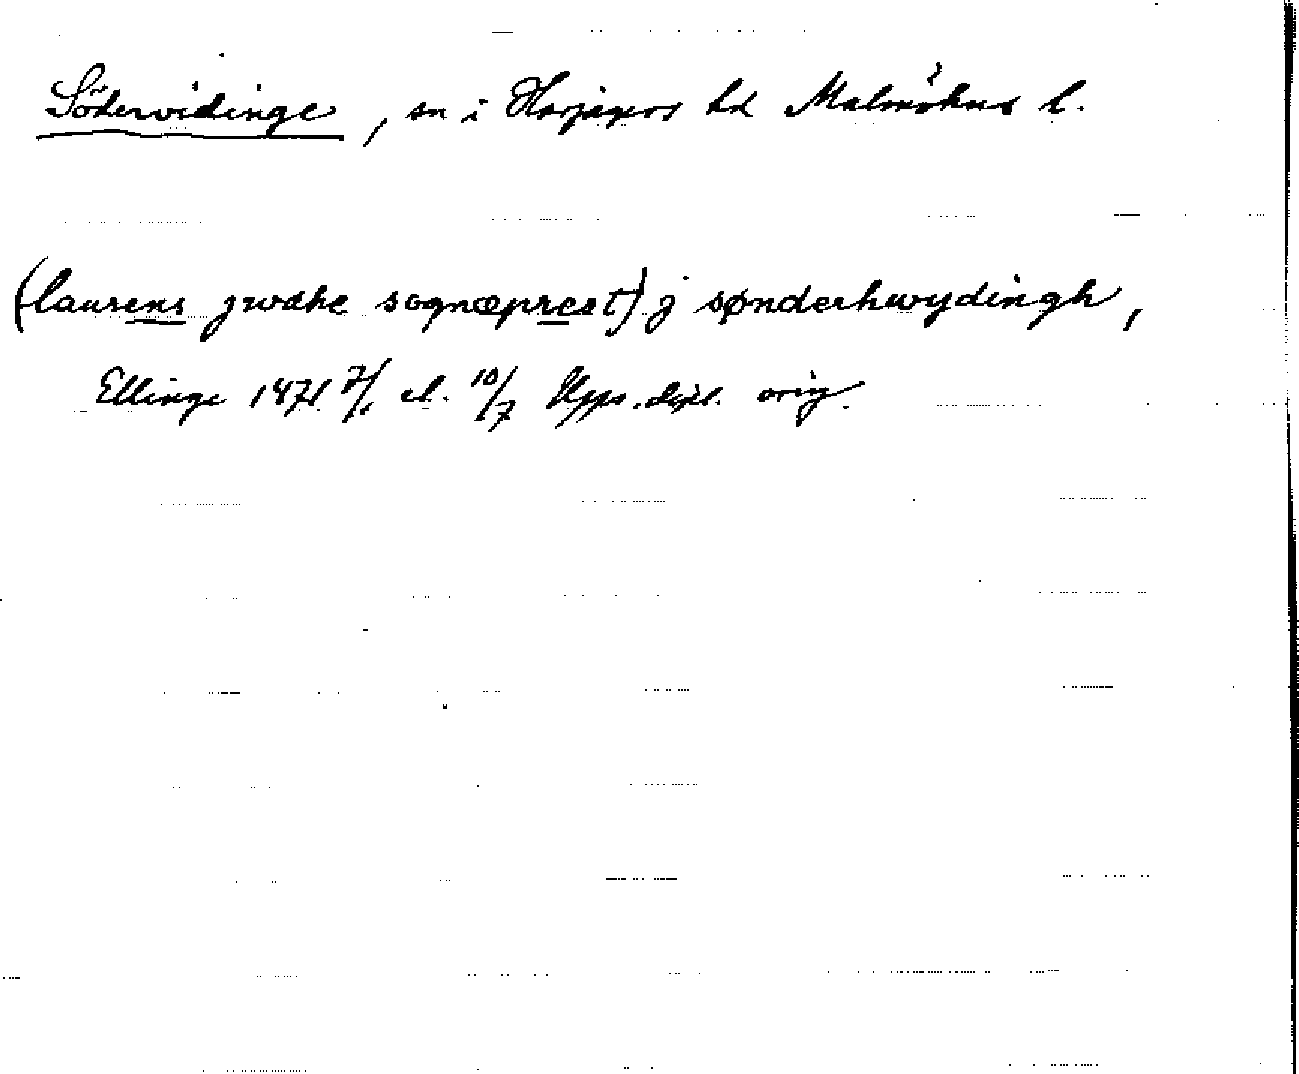 Södervidinge, sn i Harjagers hd Malmöhus l.
(laurens jwdhe sognæprest) j sønderhwydingh,
Ellinge 1471 7/1 el. 10/7 Upps. dipl. orig.